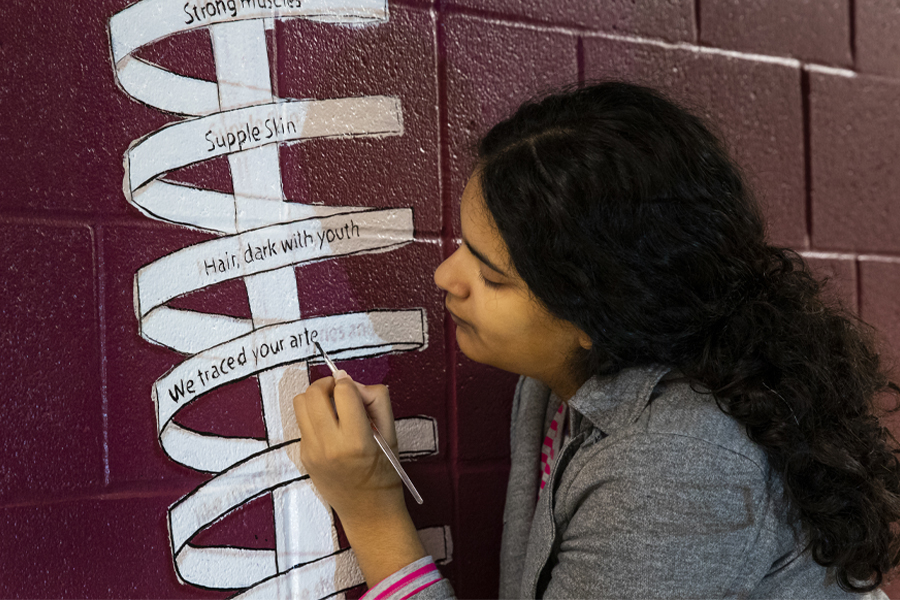 Strong muscles
Supple Skin
Hair, dark with youth
We traced your arteries and